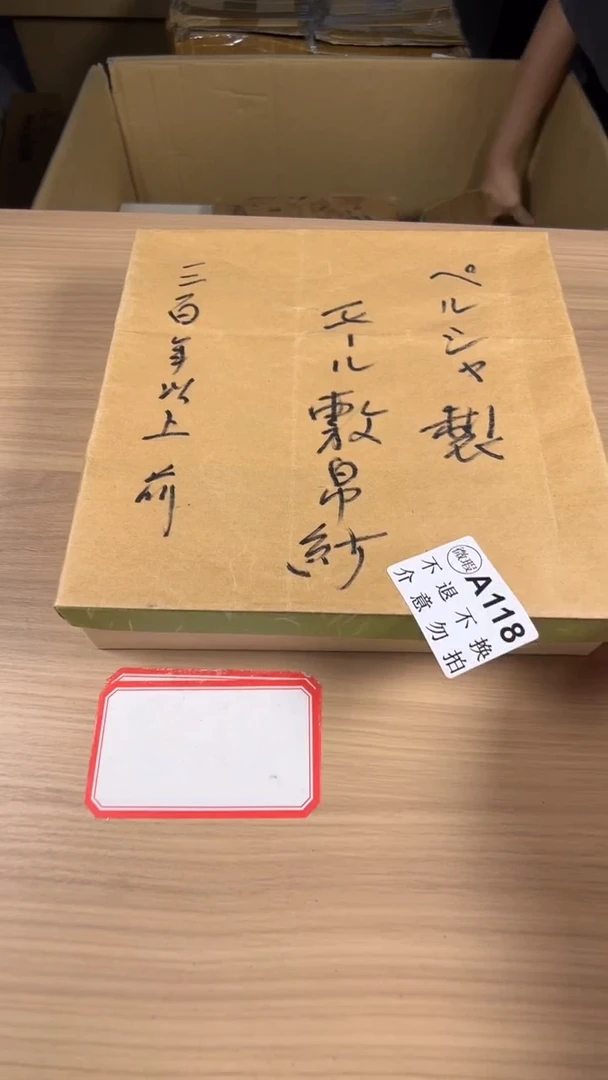 ペルシャ製
モール敷帛紗
三百年以上前
微瑕
A118
不退不换
介意勿拍